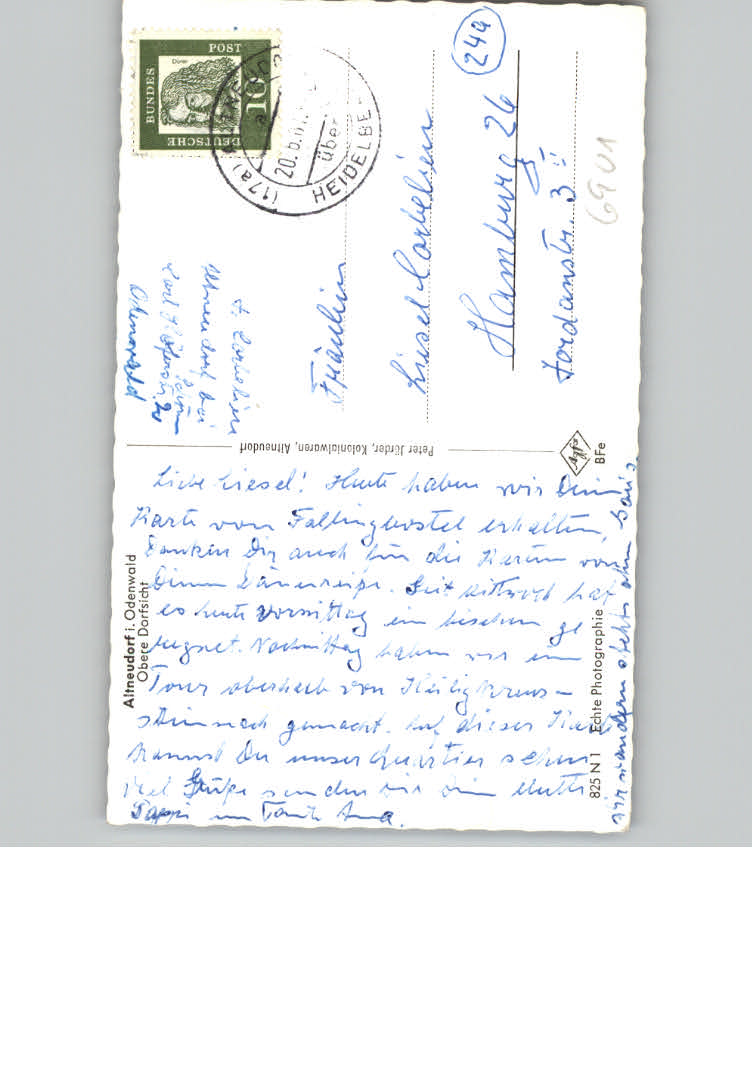 Altneudorf i. Odenwald
Obere Dorfsicht
Liebe Liesel! Heute haben wir Deine
Karte von Fallingbostel erhalten,
Danken Dir auch für die Karten von
Deiner Dänenreise. Seit Mittwoch hat
es heute Vormittag ein bischen ge
regnet. Nachmittag haben wir eine
Tour oberhalb von Heiligkreuz-
steinach gemacht. Auf dieser Karte
kannst Du unser Quartier sehen
Viel Grüße senden dir Deine Mutti
Pappi und Tante Anna.
wir wandern stets ohne
Peter Jörder, Kolonialwaren, Altneudorf
Agfa
BFe
825 N 1 Echte Photographie
DEUTSCHE
BUNDES
POST
Dürer
10
(17a)
20.6.61
über
HEIDELBE
24a
Fräulein
Liesel Corbelin
Hamburg 26
Jordanstr. 3
6901
Altneudorf bei
Odenwald